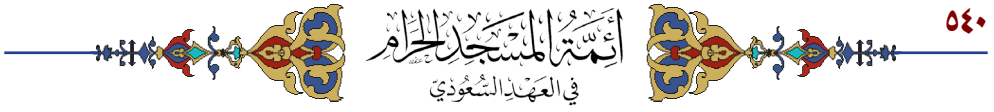 ٥٤٠
أَئِمَّةُ المَسْجِدِ الحَرَامِ
فِي العَهْدِ السُّعُودِيِّ